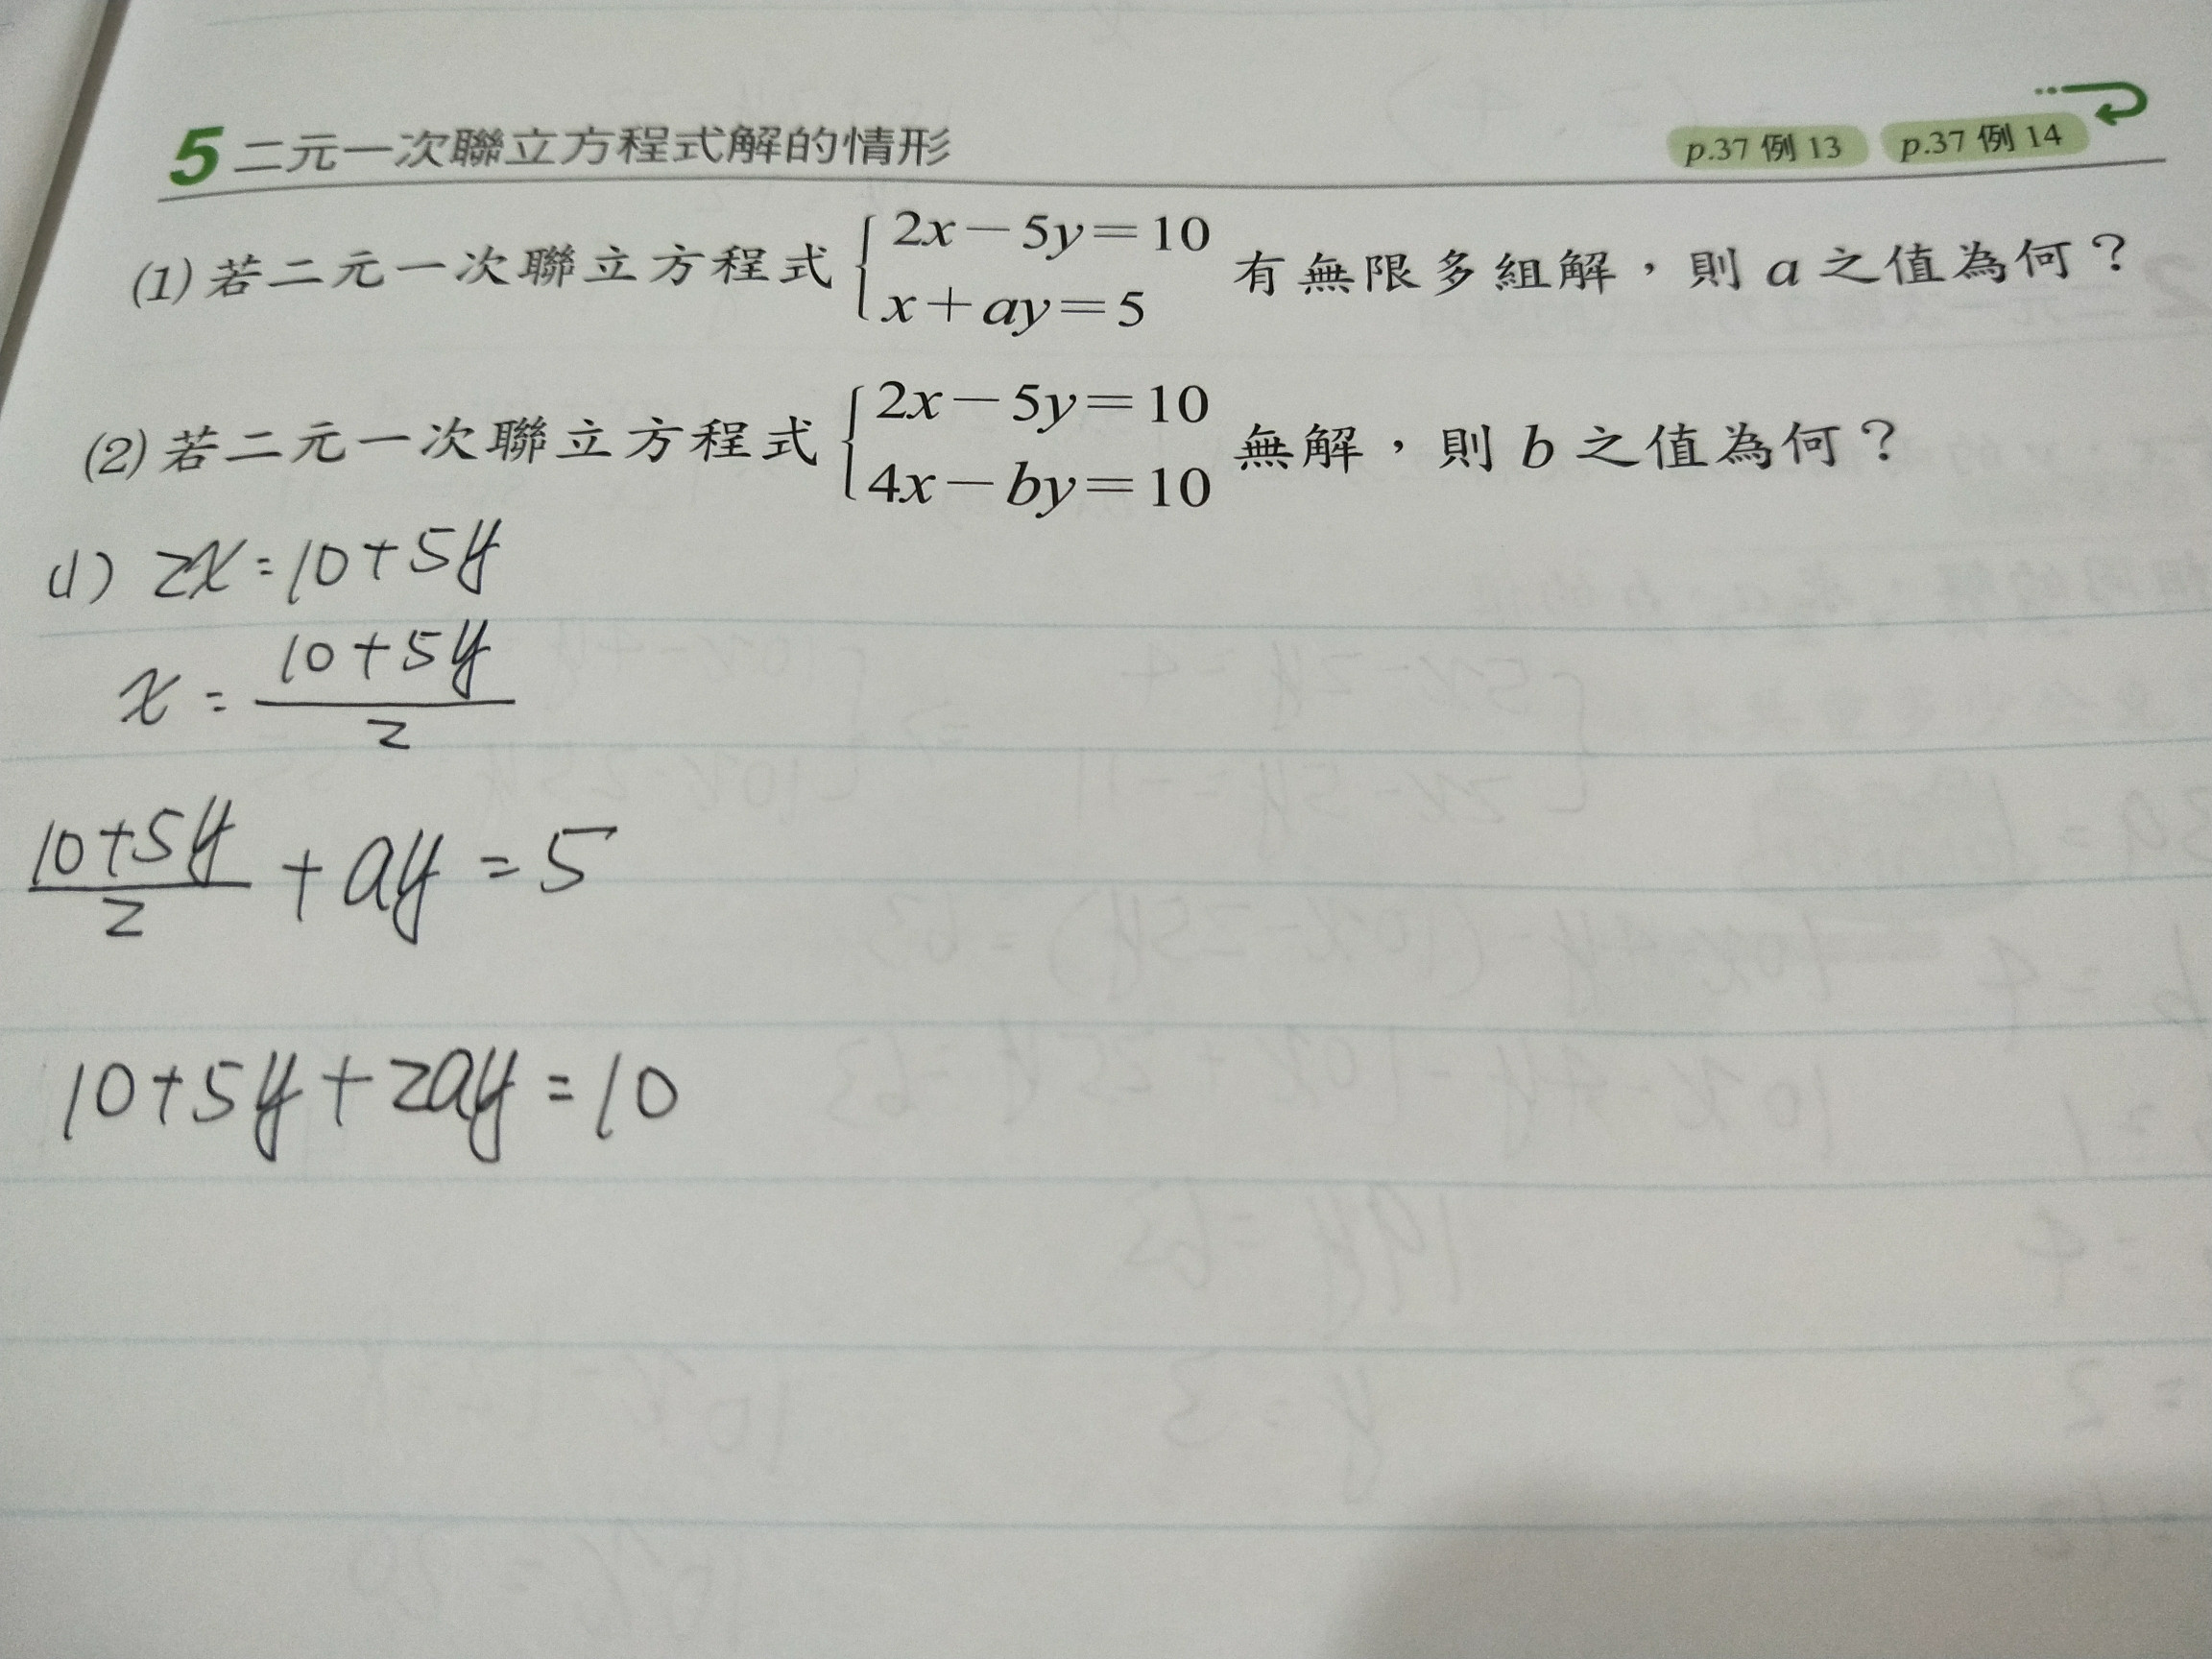 5 二元一次聯立方程式解的情形 p.37 例 13 p.37 例 14
(1) 若二元一次聯立方程式 { 2x－5y＝10 有無限多組解，則 a 之值為何？
x＋ay＝5
(2) 若二元一次聯立方程式 { 2x－5y＝10 無解，則 b 之值為何？
4x－by＝10
(1) 2x=10+5y
x = (10+5y)/2
(10+5y)/2 + ay = 5
10+5y+2ay=10